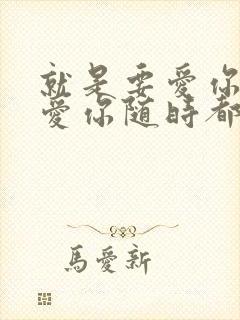 就是要愛你
愛你隨時都
馬愛新